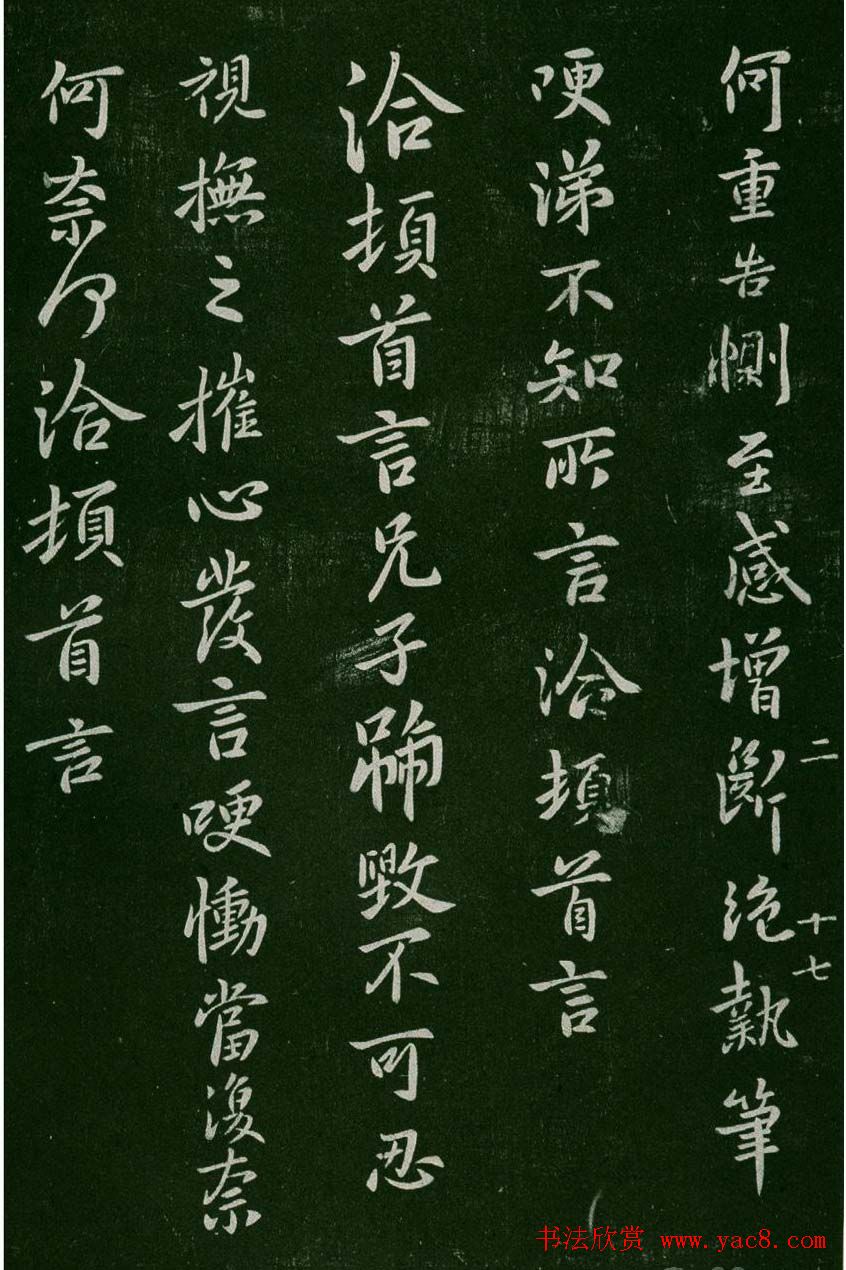 何重告惻至感增斷絕執筆
二 十七
哽涕不知所言洽頓首言
洽頓首言兄子號毀不可忍
視撫之摧心發言哽慟當復奈
何奈何洽頓首言
书法欣赏 www.yac8.com